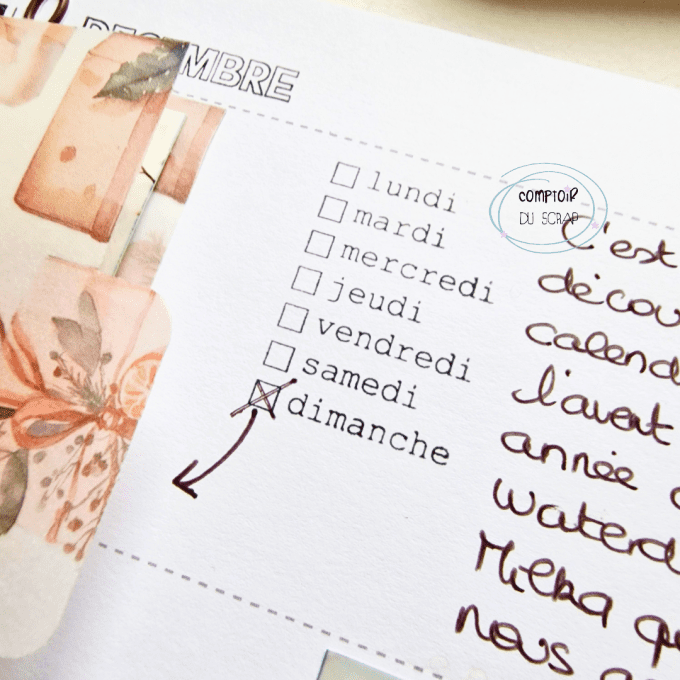 DECEMBRE
lundi
mardi
mercredi
jeudi
vendredi
samedi
dimanche
COMPTOIR
DU SCRAP
C'est
décou
calend
l'avent
année
Waterd
Milka qu
nous